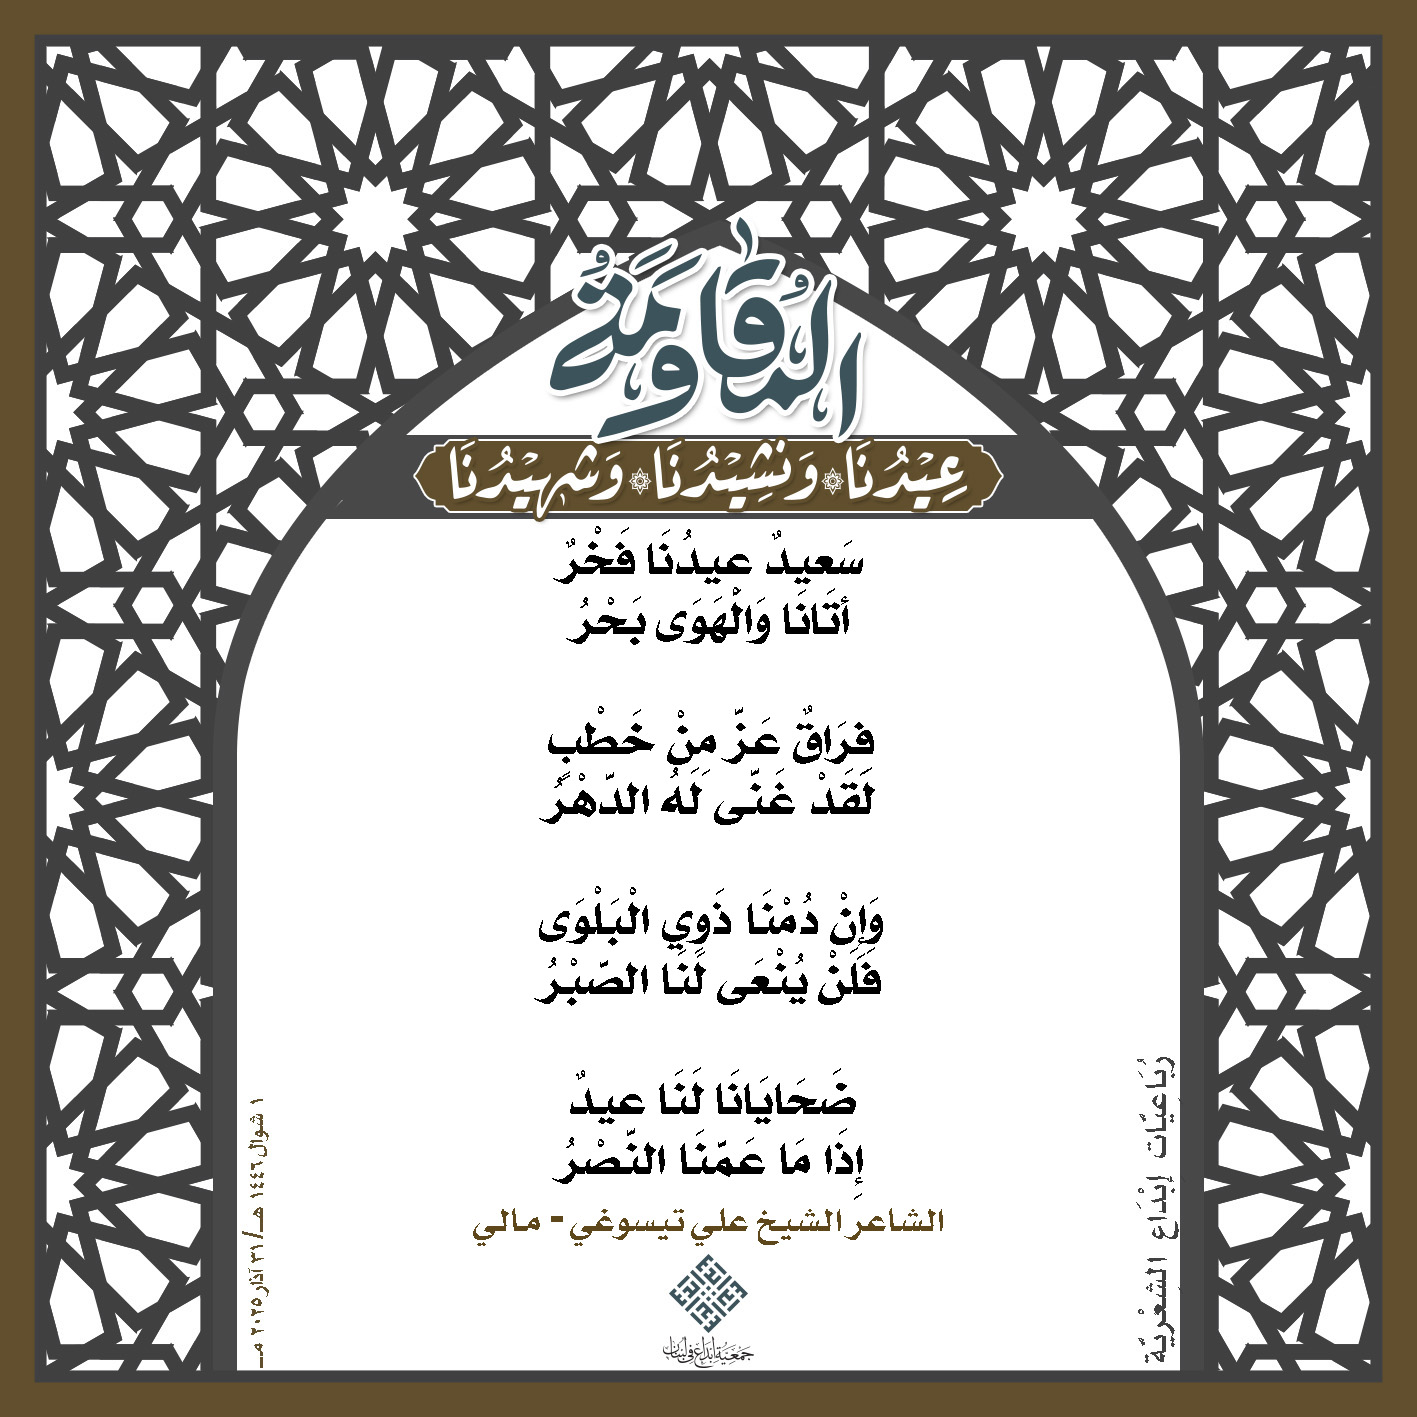 المُقَاوَمَةُ
عِيْدُنَا وَنَشِيْدُنَا وَشَهِيْدُنَا
سَعيِدٌ عيدُنَا فَخْرٌ
أتَانَا وَالْهَوَى بَحْرُ
فرَاقٌ عَزّ مِنْ خَطْبٍ
لَقَدْ غَنّى لَهُ الدّهْرُ
وَإِنْ دُمْنَا ذَوِي الْبَلْوَى
فَلَنْ يُنْعَى لَنَا الصّبْرُ
ضَحَايَانَا لَنَا عيدٌ
إِذَا مَا عَمّنَا النّصْرُ
الشاعر الشيخ علي تيسوغي - مالي
جمعية إبداع في لبنان
رُبَاعيّات إبْدَاع الشعْريّة
١ شوال ١٤٤٦ هـ/ ٣١ آذار ٢٠٢٥ مـ